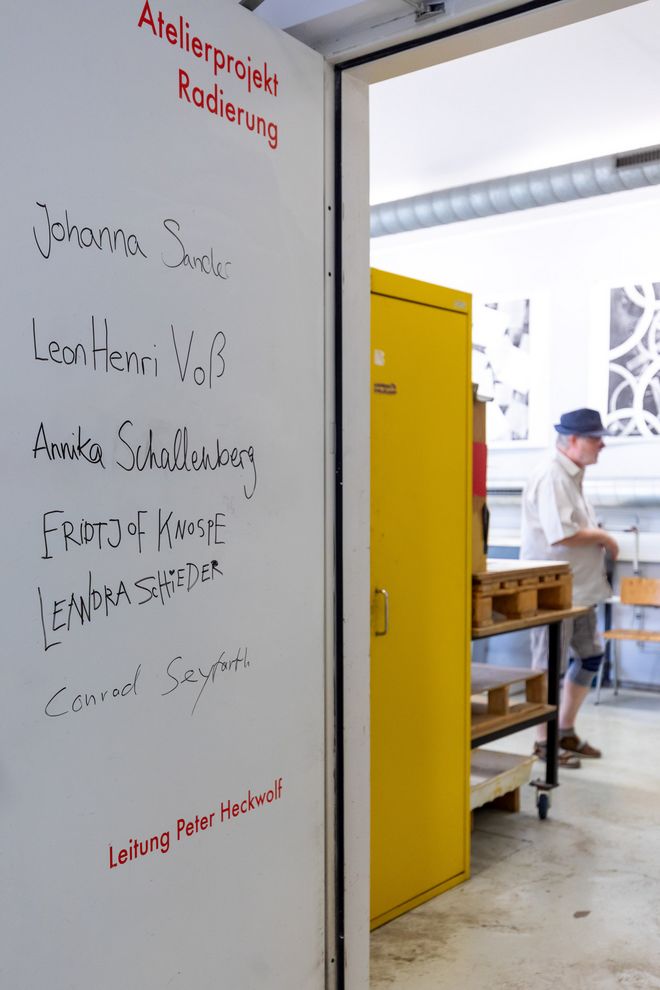 Atelierprojekt
Radierung
Johanna Sander
LeonHenri Voß
Annika Schallenberg
FRIDTJOF KNOSPE
LEANDRA SCHIEDER
Conrad Seyfarth
Leitung Peter Heckwolf